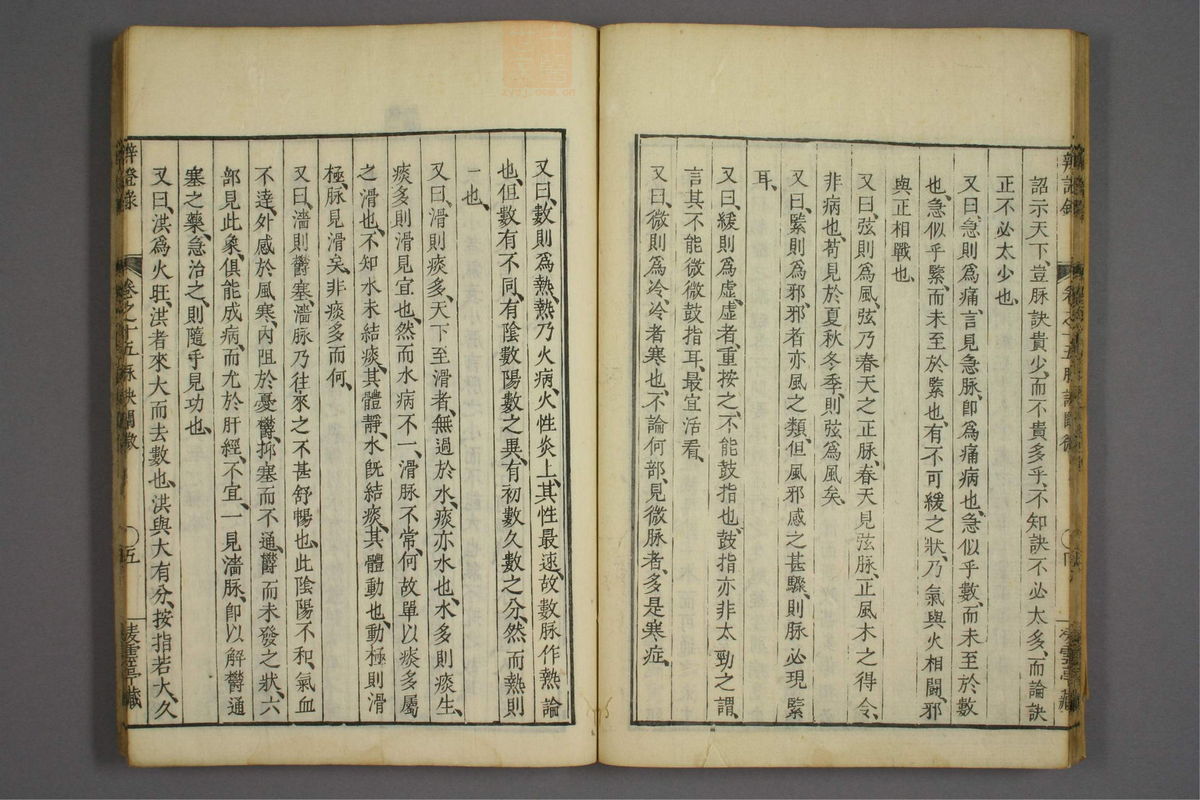 詔示天下豈脉訣貴少而不貴多乎不知訣不必太多而論訣
正不必太少也
又曰急則為痛言見急脉卽為痛病也急似乎數而未至於數
也急似乎緊而未至於緊也有不可緩之狀乃氣與火相鬭邪
與正相戰也
又曰弦則為風弦乃春天之正脉春天見弦脉正風木之得令
非病也苟見於夏秋冬季則弦為風矣
又曰緊則為邪邪者亦風之類但風邪感之甚驟則脉必現緊
耳
又曰緩則為虛虛者重按之不能鼓指也鼓指亦非太勁之謂
言其不能微微鼓指耳最宜活看
又曰微則為冷冷者寒也不論何部見微脉者多是寒症
又曰數則為熱熱乃火病火性炎上其性最速故數脉作熱論
也但數有不同有陰數陽數之異有初數久數之分然而熱則
一也
又曰滑則痰多天下至滑者無過於水痰亦水也水多則痰生
痰多則滑見宜也然而水病不一滑脉不常何故單以痰多屬
之滑也不知水未結痰其體靜水旣結痰其體動也動極則滑
極脉見滑矣非痰多而何
又曰濇則鬱塞濇脉乃往來之不甚舒暢也此陰陽不和氣血
不達外感於風寒內阻於憂鬱抑塞而不通鬱而未發之狀六
部見此象俱能成病而尤於肝經不宜一見濇脉卽以解鬱通
塞之藥急治之則隨手見功也
又曰洪為火旺洪者來大而去數也洪與大有分按指若大久
辨證錄
卷之十五脉訣闡微
五